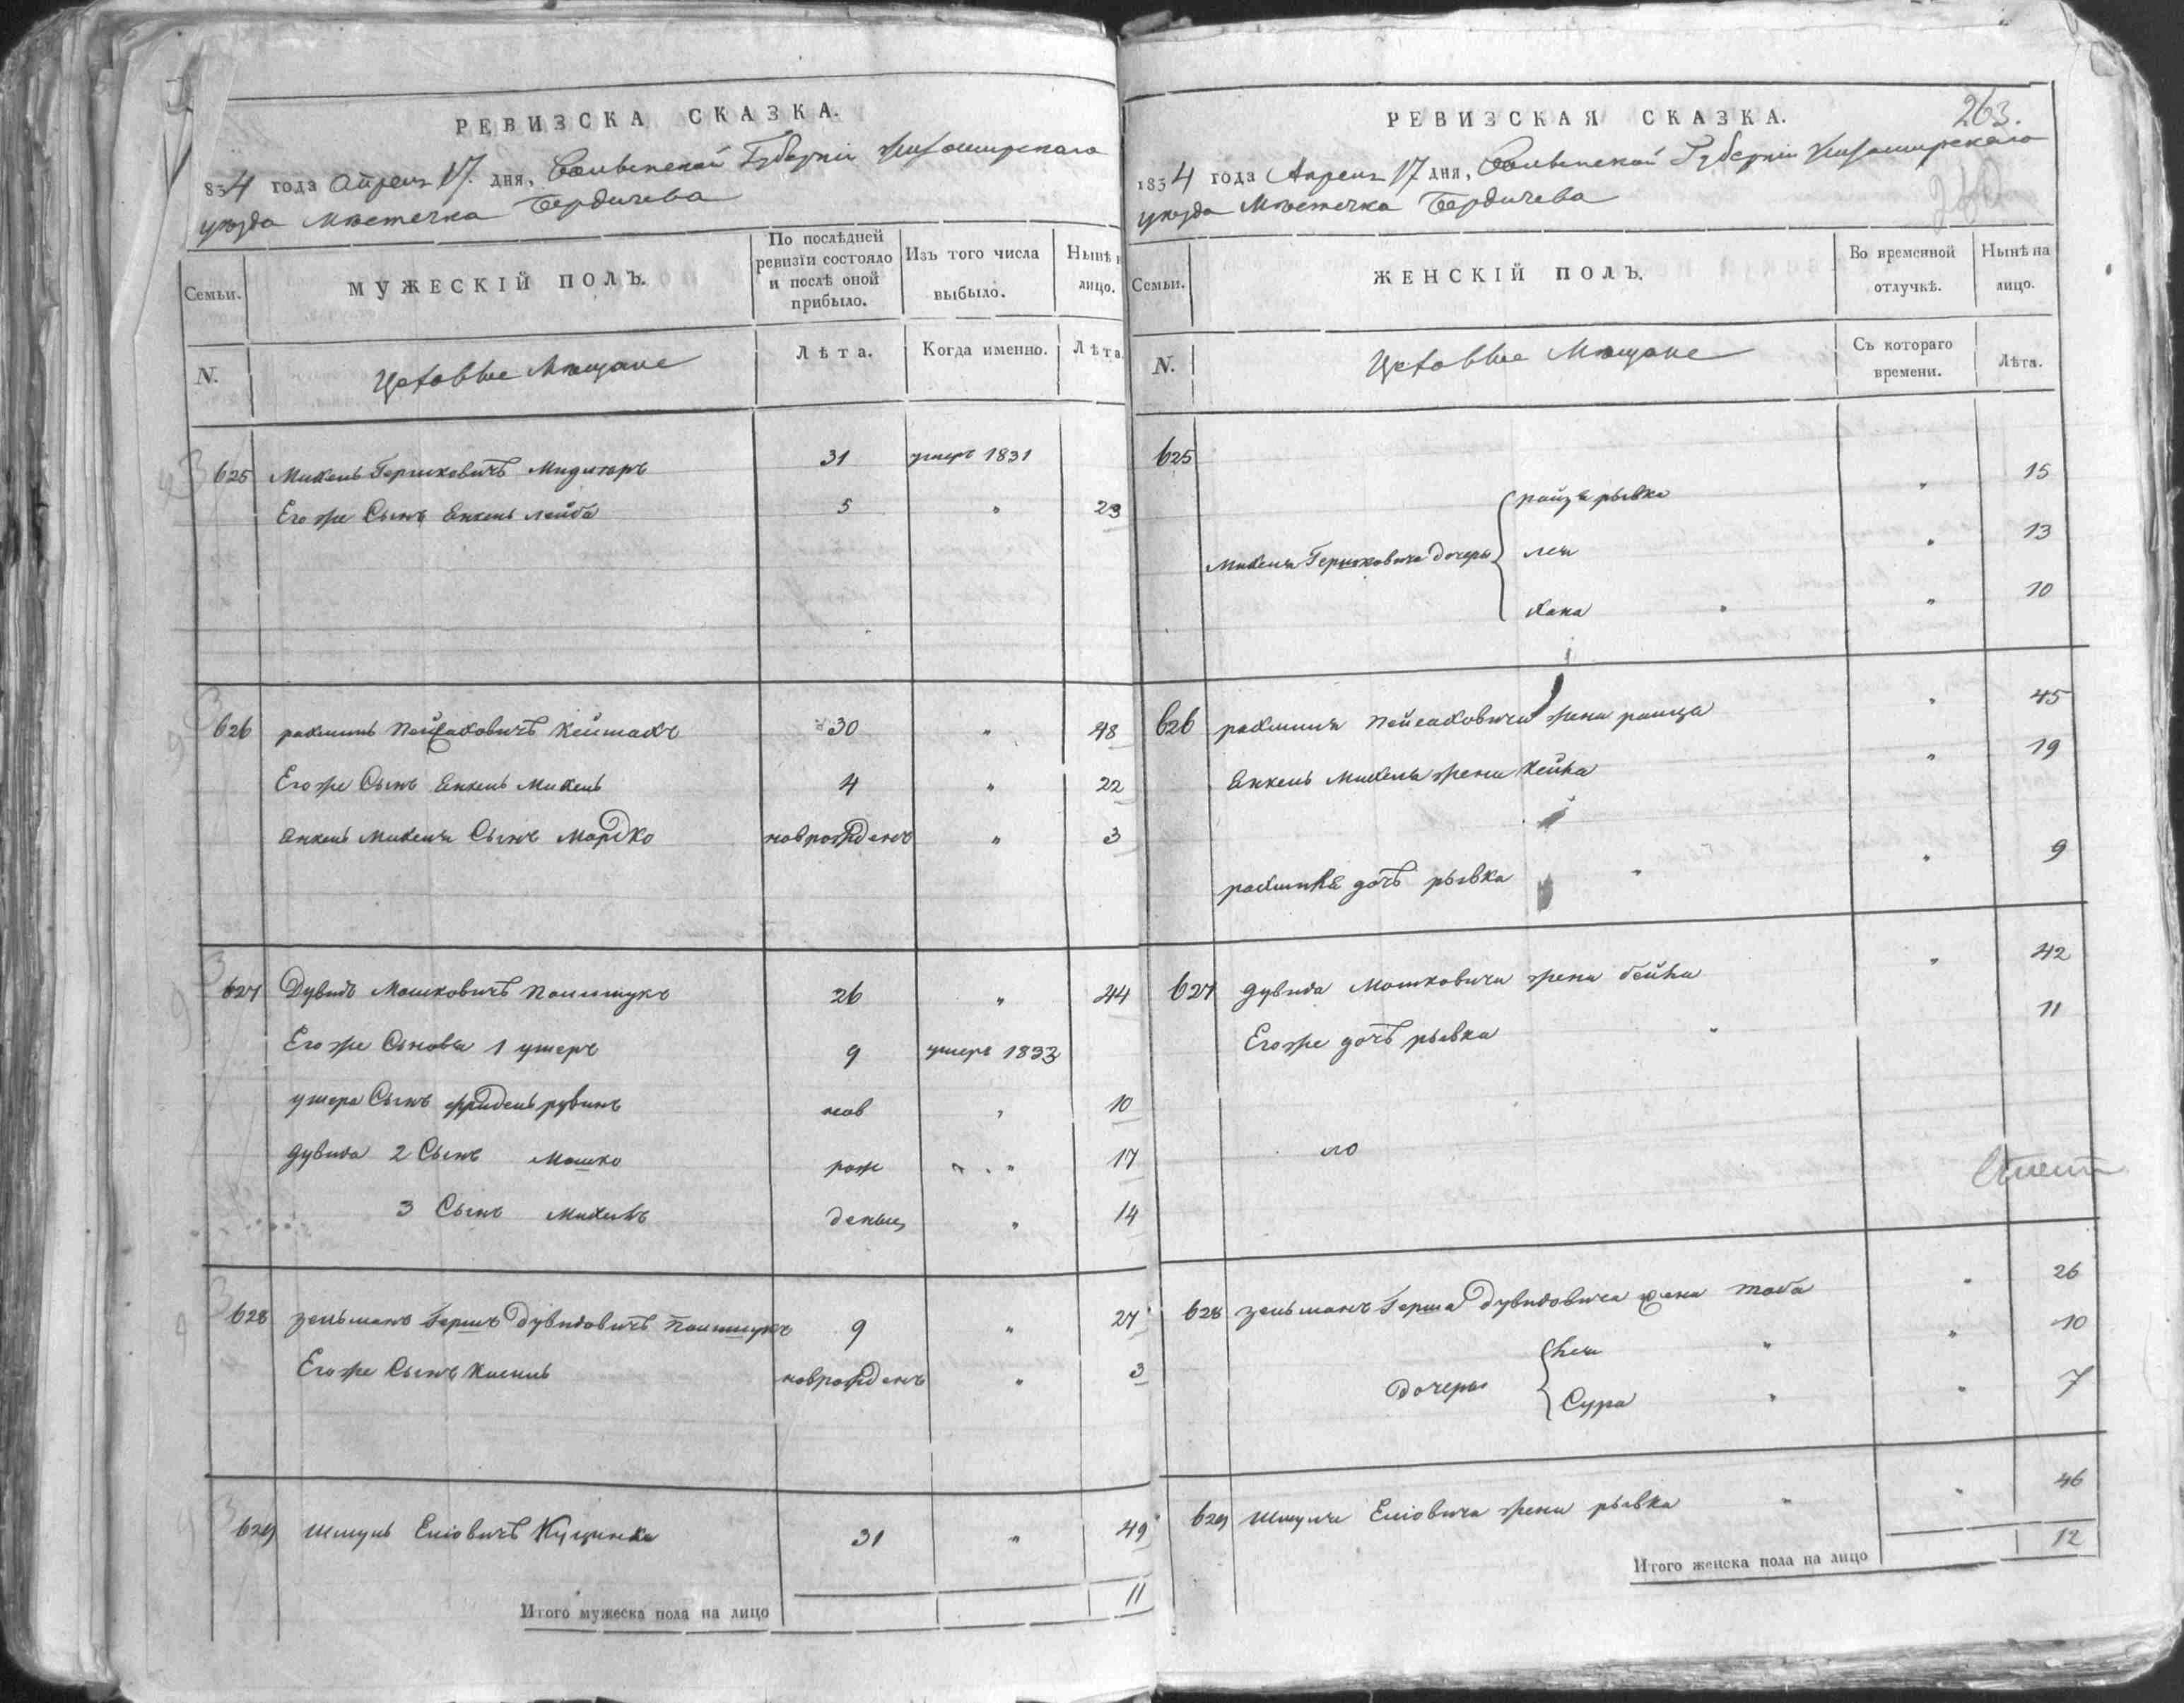 РЕВИЗСКА СКАЗКА.
834 года Апреля 17. дня, Волынской Губернiи Житомирскаго
уезда Местечка Бердичева
Семьи.
МУЖЕСКIЙ ПОЛЪ.
По послѣдней ревизiи состояло и послѣ оной прибыло.
Изъ того числа выбыло.
Нынѣ лицо.
N.
Цеховые Мещане
Лѣта.
Когда именно.
Лѣта
625 Михель Гершковичъ 31 умеръ 1831
Его же Сынъ Янкель Лейба 5 " 23
626 рахмиль Пейсаховичъ 30 " 48
Его же Сынъ Янкель Михель 4 " 22
Янкель Михеля Сынъ Мордко новрожденъ " 3
627 Дувидъ Мошковичъ Полищукъ 26 " 44
Его же Сыновья 1 умеръ 9 умеръ 1833
умера Сынъ Фридель рувинъ нов " 10
дувида 2 Сынъ Мошко рож " 17
3 Сынъ Михель деныи " 14
628 зельманъ Гершъ Дувидовичъ Полищукъ 9 " 27
Его же Сынъ новрожденъ " 3
629 Шмуль Елiовичъ 31 " 49
Итого мужеска пола на лицо 11
РЕВИЗСКАЯ СКАЗКА.
263.
1834 года Апреля 17 дня, Волынской Губернiи Житомирскаго
уезда Местечка Бердичева
Семьи.
ЖЕНСКIЙ ПОЛЪ.
Во временной отлучкѣ.
Нынѣ на лицо.
N.
Цеховые Мещане
Съ котораго времени.
Лѣта.
625
рывка " 15
Михеля Гершковича дочеры лея " 13
хана " 10
626 рахмиля Пейсаховича жена раица " 45
Янкель Михеля жена хейна " 19
рахмиля дочъ рывка " 9
627 дувида Мошковича жена бейна " 42
Его же дочъ рывка " 11
628 зельманъ Герша Дувидовича жена тоба " 26
Дочеры " 10
Сура " 7
629 Шмуля Елiовича жена рывка " 46
Итого женска пола на лицо 12